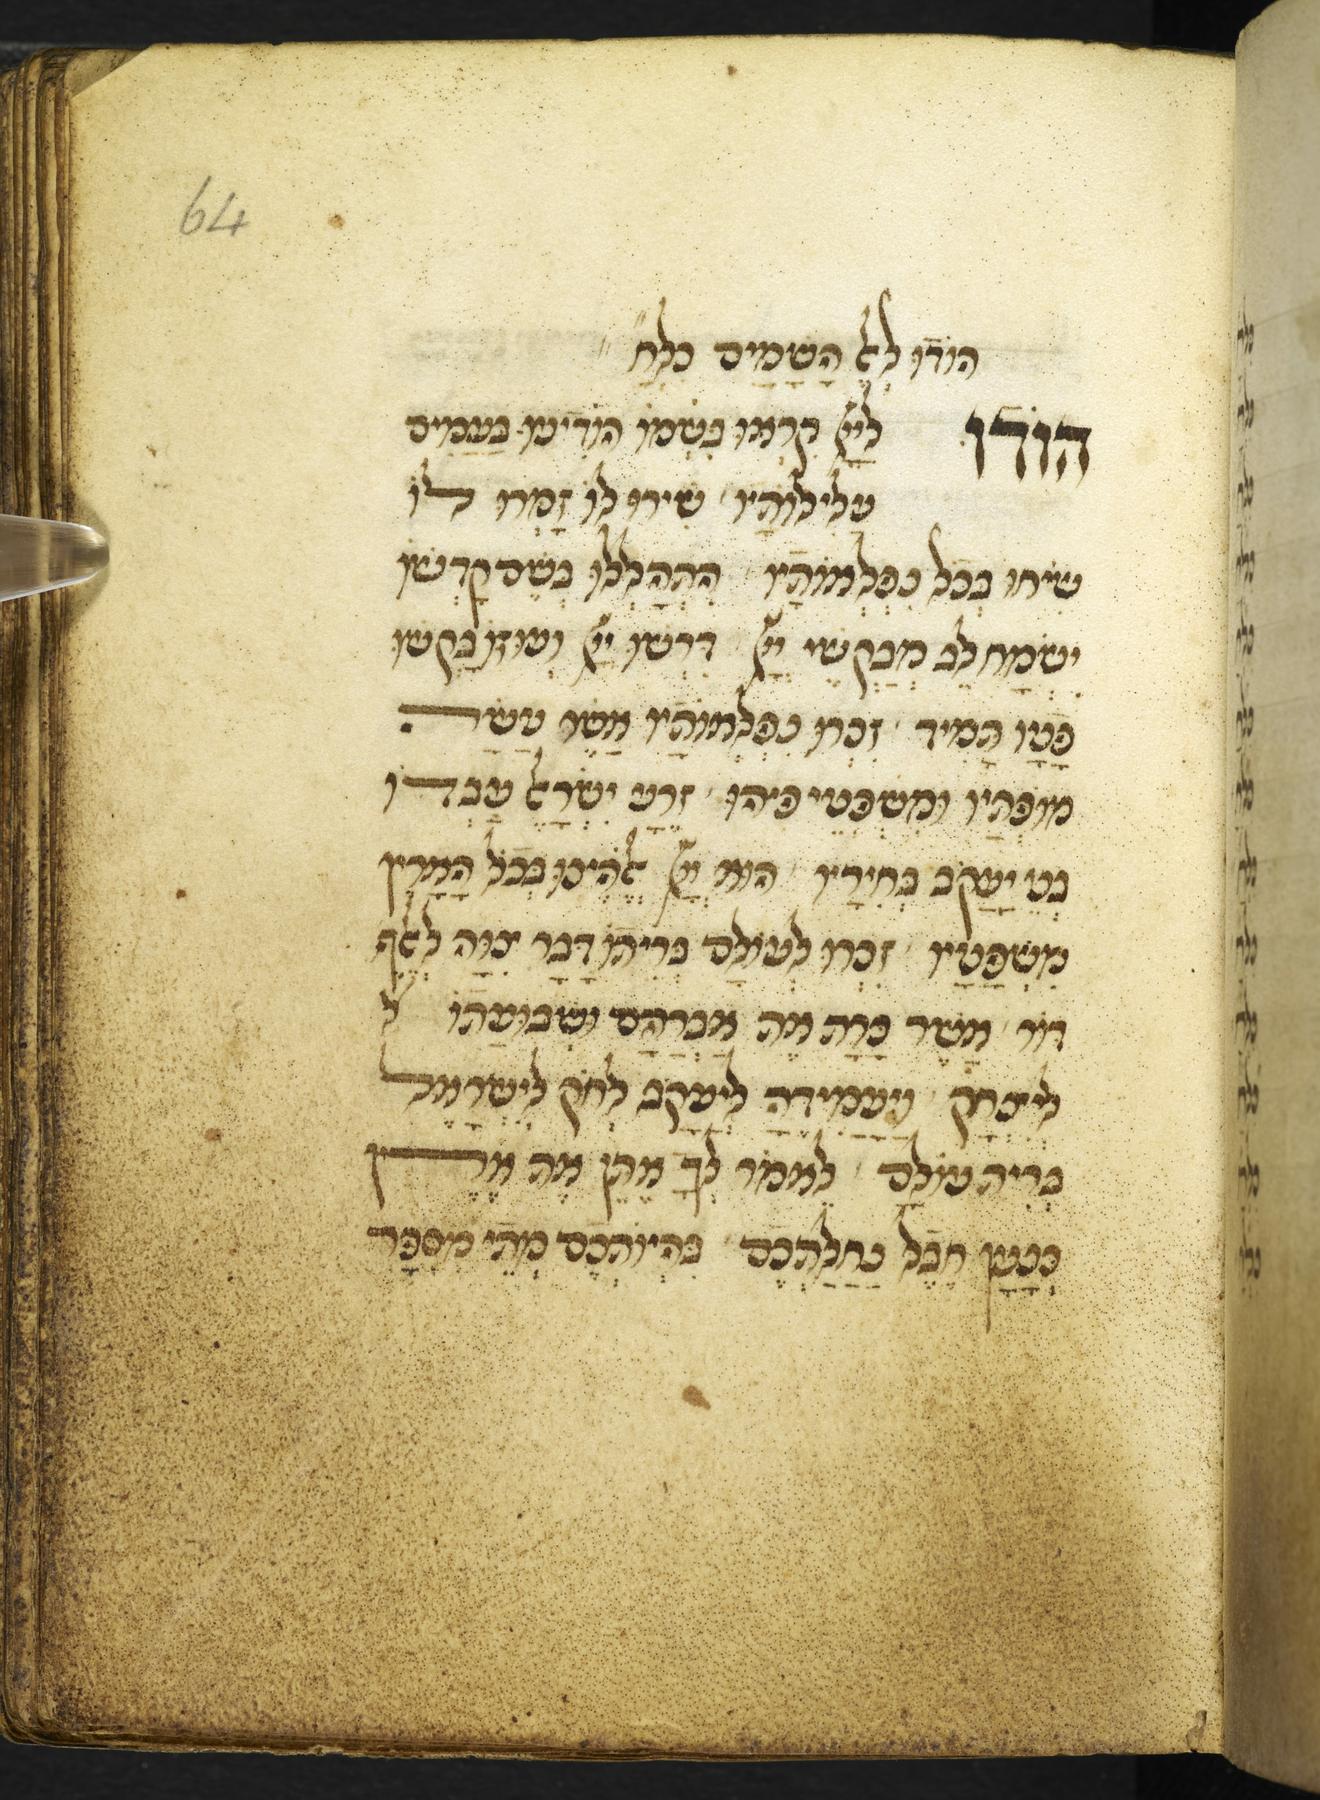 64
הודו לאל השמים כלח״
הודו ליי קראו בשמו הודיעו בעמים
עלילותיו שירו לו זמרו לו
שיחו בכל נפלאותיו התהללו בשם קדשו
ישמח לב מבקשי יי דרשו יי ועוזו בקשו
פניו תמיד זכרו נפלאותיו אשר עשה
מופתיו ומשפטי פיהו זרע ישראל עבדו
בני יעקב בחיריו הוא יי אלהינו בכל הארץ
משפטיו זכרו לעולם בריתו דבר צוה לאלף
דור אשר כרת את אברהם ושבועתו ל
ליצחק ויעמידה ליעקב לחק לישראל
ברית עולם לאמר לך אתן את ארץ
כנען חבל נחלתכם בהיותכם מתי מספר